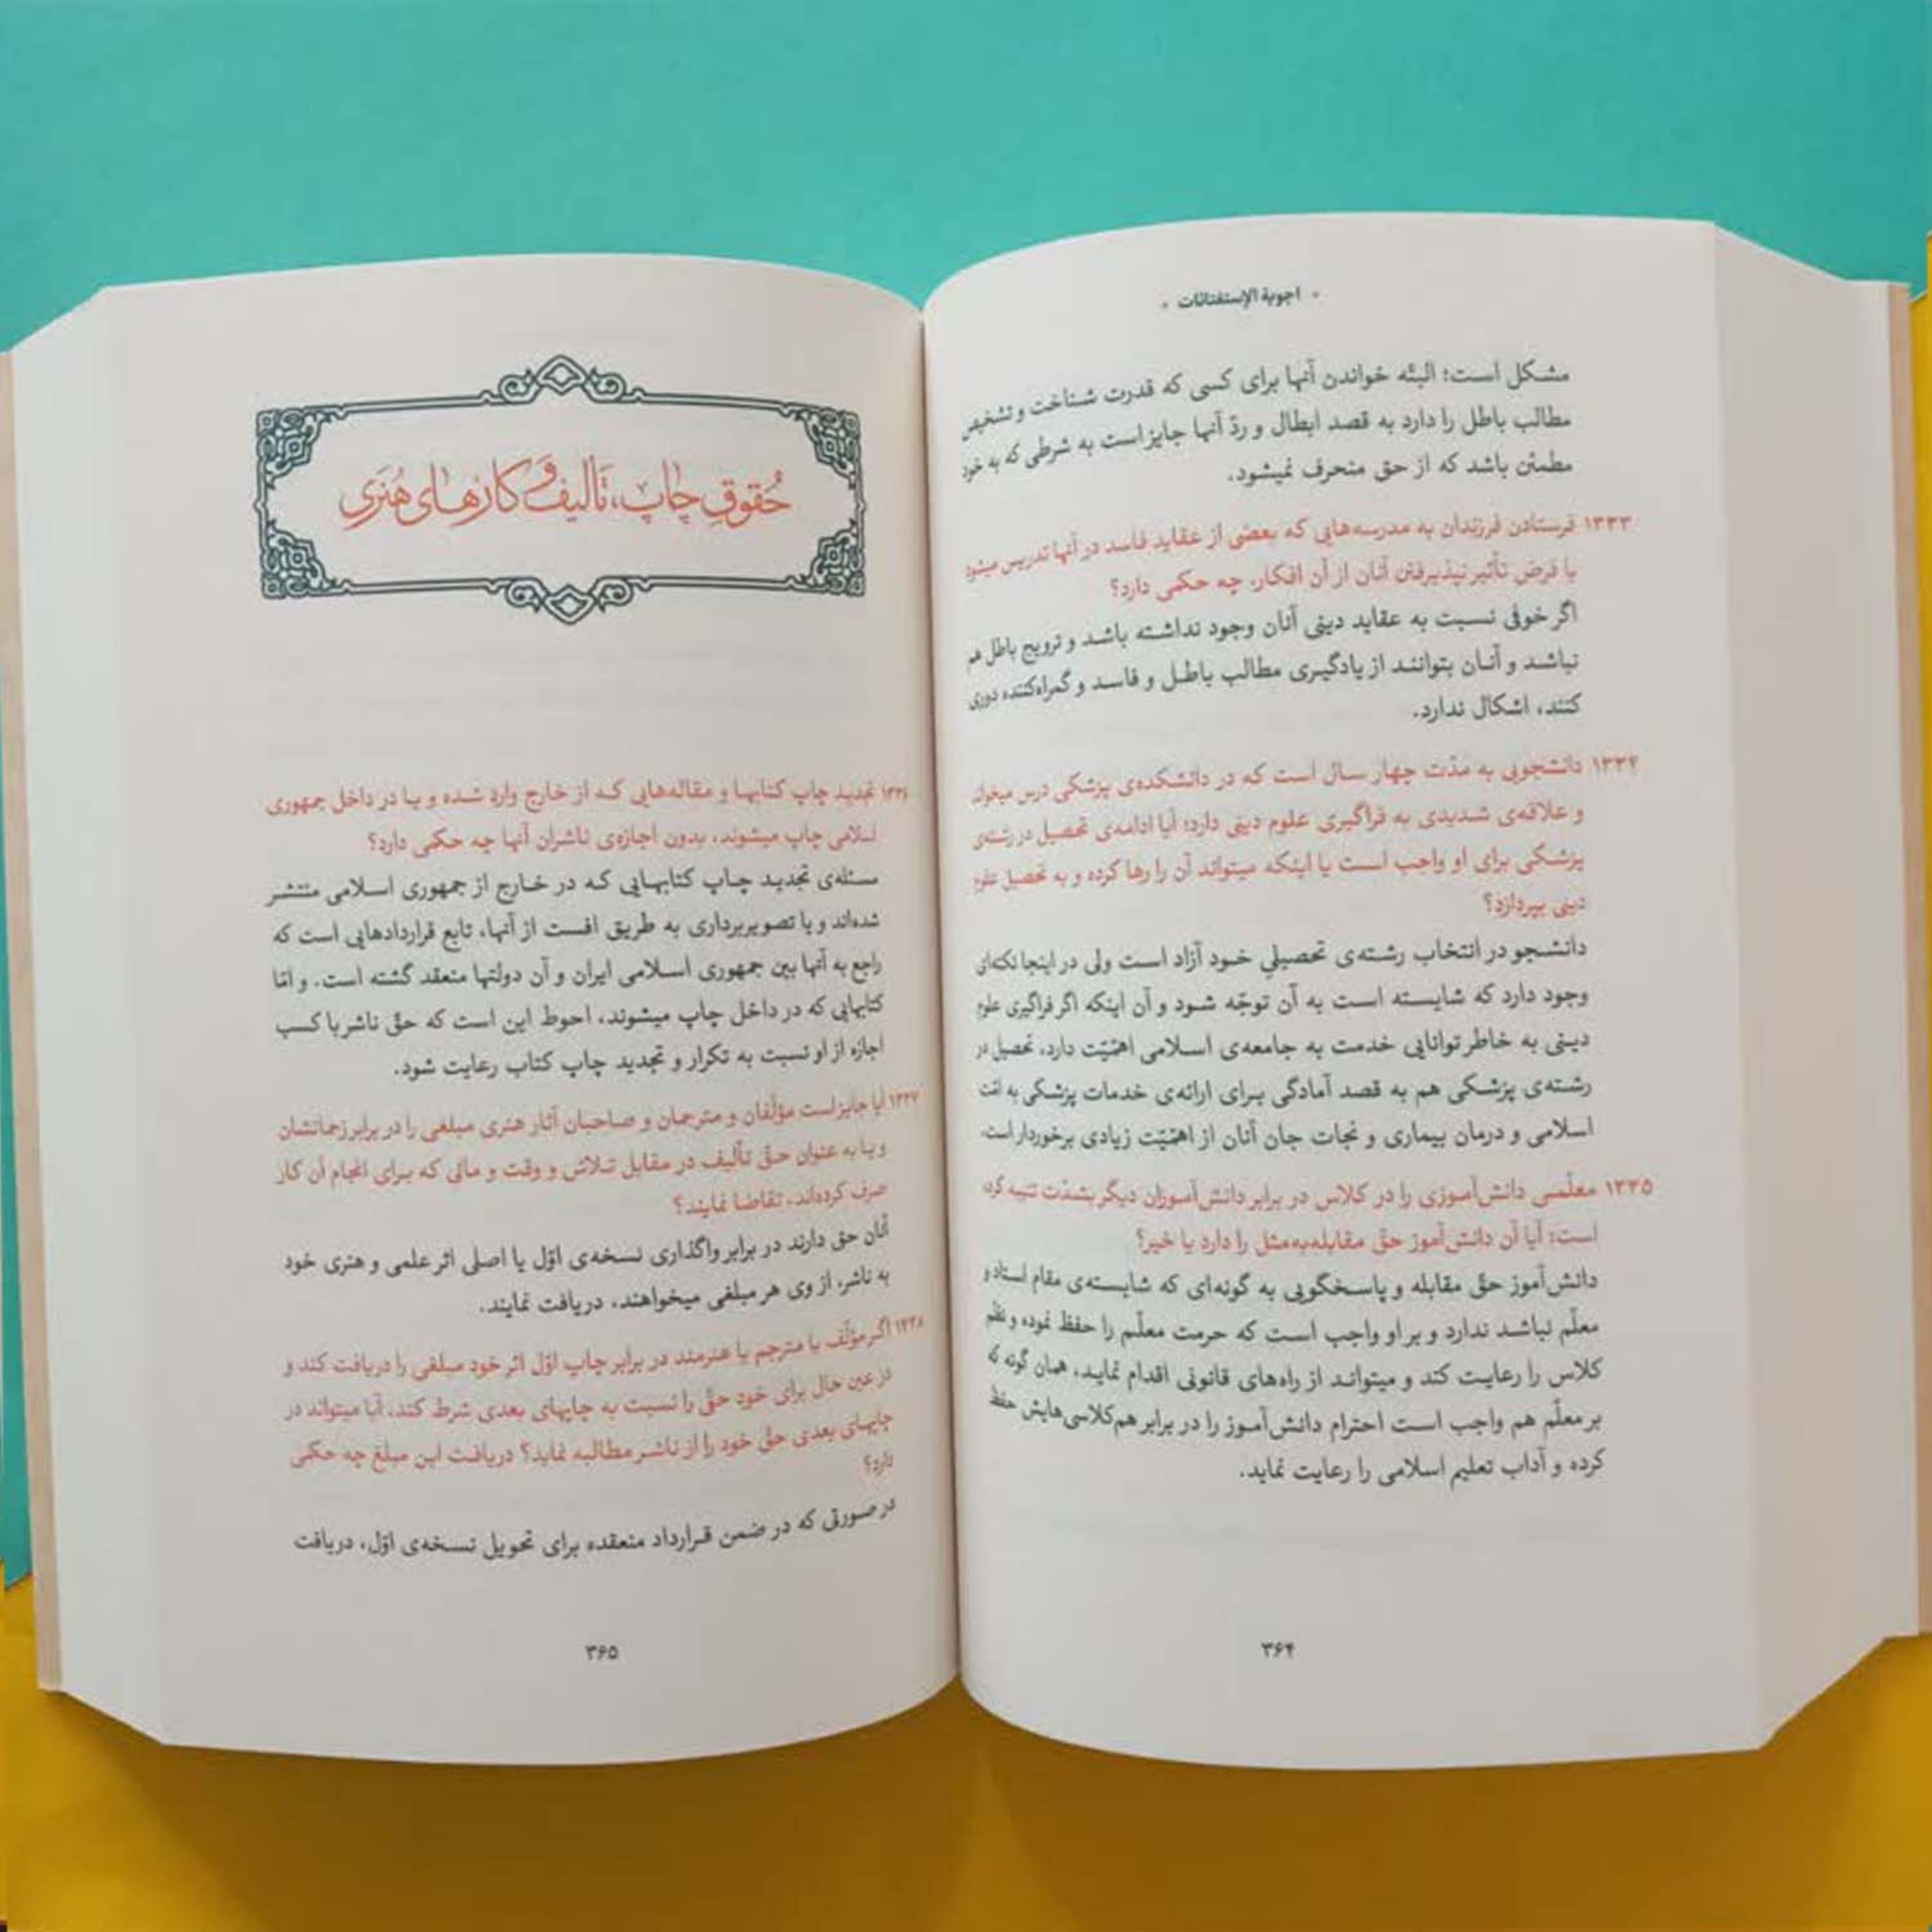 • اجوبة الإستفتائات •
مشکل است؛ البتّه خواندن آنها برای کسی که قدرت شناخت و تشخیص
مطالب باطل را دارد به قصد ابطال و ردّ آنها جایز است به شرطی که به خود
مطمئن باشد که از حق منحرف نمیشود.
۱۳۳۳ فرستادن فرزندان به مدرسه‌هایی که بعضی از عقاید فاسد در آنها تدریس میشود
با فرض تأثیر نپذیرفتن آنان از آن افکار، چه حکمی دارد؟
اگر خوفی نسبت به عقاید دینی آنان وجود نداشته باشد و ترویج باطل هم
نباشد و آنان بتوانند از یادگیری مطالب باطل و فاسد و گمراه‌کننده دوری
کنند، اشکال ندارد.
۱۳۳۴ دانشجویی به مدّت چهار سال است که در دانشکده‌ی پزشکی درس میخواند
و علاقه‌ی شدیدی به فراگیری علوم دینی دارد؛ آیا ادامه‌ی تحصیل در رشته‌ی
پزشکی برای او واجب است یا اینکه میتواند آن را رها کرده و به تحصیل علوم
دینی بپردازد؟
دانشجو در انتخاب رشته‌ی تحصیلیِ خود آزاد است ولی در اینجا نکته‌ای
وجود دارد که شایسته است به آن توجّه شود و آن اینکه اگر فراگیری علوم
دینی به خاطر توانایی خدمت به جامعه‌ی اسلامی اهمّیّت دارد، تحصیل در
رشته‌ی پزشکی هم به قصد آمادگی برای ارائه‌ی خدمات پزشکی به امّت
اسلامی و درمان بیماری و نجات جان آنان از اهمّیّت زیادی برخوردار است.
۱۳۳۵ معلّمی دانش‌آموزی را در کلاس در برابر دانش‌آموزان دیگر بشدّت تنبیه کرده
است؛ آیا آن دانش‌آموز حقّ مقابله‌به‌مثل را دارد یا خیر؟
دانش‌آموز حقّ مقابله و پاسخگویی به گونه‌ای که شایسته‌ی مقام استاد و
معلّم نباشد ندارد و بر او واجب است که حرمت معلّم را حفظ نموده و نظم
کلاس را رعایت کند و میتواند از راه‌های قانونی اقدام نماید، همان گونه که
بر معلّم هم واجب است احترام دانش‌آموز را در برابر هم‌کلاسی‌هایش حفظ
کرده و آداب تعلیم اسلامی را رعایت نماید.
۳۶۴
حُقوقِ چاپ، تألیف و کارهای هُنَری
۱۳۳۶ تجدید چاپ کتابها و مقاله‌هایی که از خارج وارد شده و یا در داخل جمهوری
اسلامی چاپ میشوند، بدون اجازه‌ی ناشران آنها چه حکمی دارد؟
مسئله‌ی تجدید چاپ کتابهایی که در خارج از جمهوری اسلامی منتشر
شده‌اند و یا تصویربرداری به طریق افست از آنها، تابع قراردادهایی است که
راجع به آنها بین جمهوری اسلامی ایران و آن دولتها منعقد گشته است. و امّا
کتابهایی که در داخل چاپ میشوند، احوط این است که حقّ ناشر با کسب
اجازه از او نسبت به تکرار و تجدید چاپ کتاب رعایت شود.
۱۳۳۷ آیا جایز است مؤلّفان و مترجمان و صاحبان آثار هنری مبلغی را در برابر زحماتشان
و یا به عنوان حقّ تألیف در مقابل تلاش و وقت و مالی که برای انجام آن کار
صرف کرده‌اند، تقاضا نمایند؟
آنان حق دارند در برابر واگذاری نسخه‌ی اوّل یا اصلی اثر علمی و هنری خود
به ناشر، از وی هر مبلغی میخواهند، دریافت نمایند.
۱۳۳۸ اگر مؤلّف یا مترجم یا هنرمند در برابر چاپ اوّل اثر خود مبلغی را دریافت کند و
در عین حال برای خود حقّی را نسبت به چاپهای بعدی شرط کند، آیا میتواند در
چاپهای بعدی حقّ خود را از ناشر مطالبه نماید؟ دریافت این مبلغ چه حکمی
دارد؟
در صورتی که در ضمن قرارداد منعقده برای تحویل نسخه‌ی اوّل، دریافت
۳۶۵